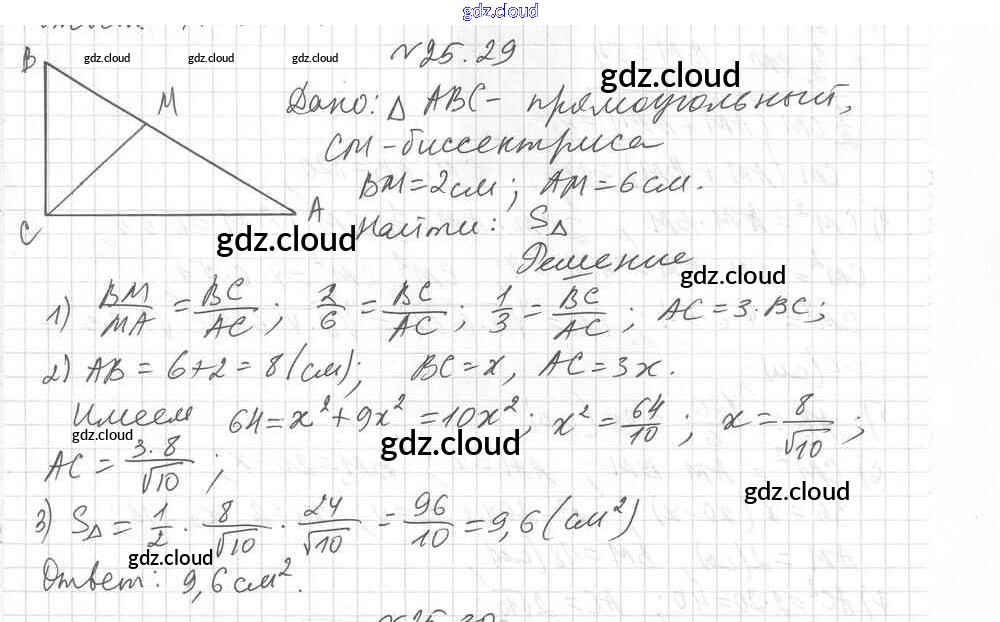 gdz.cloud
№25.29
B gdz.cloud gdz.cloud gdz.cloud
gdz.cloud
M Дано: △ ABC - прямоугольный,
CM - биссектриса
BM = 2 см; AM = 6 см.
C A gdz.cloud Найти: S△
Решение
gdz.cloud
1) BM/MA = BC/AC; 2/6 = BC/AC; 1/3 = BC/AC; AC = 3·BC;
2) AB = 6+2 = 8 (см); BC = x, AC = 3x.
Имеем 64 = x² + 9x² = 10x²; x² = 64/10; x = 8/√10;
gdz.cloud gdz.cloud
AC = 3·8/√10;
gdz.cloud
3) S△ = 1/2 · 8/√10 · 24/√10 = 96/10 = 9,6 (см²)
gdz.cloud
Ответ: 9,6 см².
№25.30